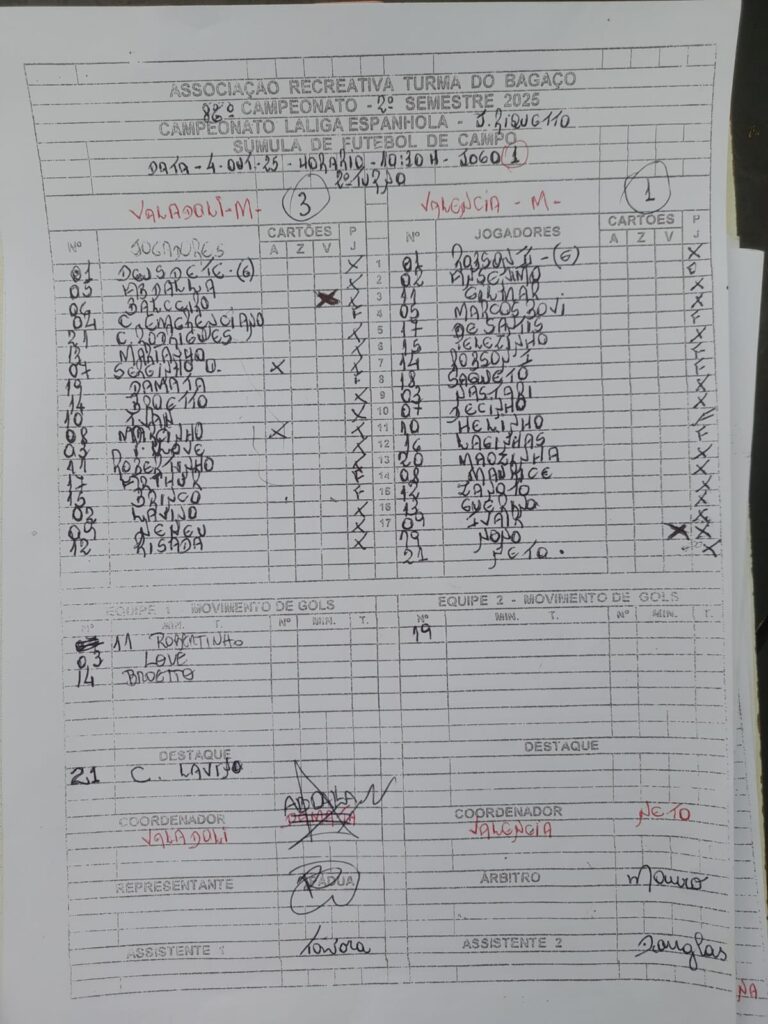 ASSOCIAÇÃO RECREATIVA TURMA DO BAGAÇO
86º CAMPEONATO - 2º SEMESTRE 2025
CAMPEONATO LALIGA ESPANHOLA - J. RIQUETTO
SÚMULA DE FUTEBOL DE CAMPO
DATA - 4-OUT-25 - HORARIO - 10:30 H - JOGO 1
2º TURNO
VALADOLI-M- 3 VALENCIA - M- 1
Nº JOGADORES CARTÕES A Z V P J Nº JOGADORES CARTÕES A Z V P J
01 DEUSDETE-(6) X 1 01 ROBSON II-(6) X
05 ABDALLA X 2 02 ANSELMO
06 BALCEIRO X 3 11 GILMAR X
04 C. EMERENCIANO F 4 05 MARCOS JOVI F
21 C. RODRIGUES X 5 17 DE SANTIS X
13 MARIANHO X 6 15 TELEZINHO F
07 SERGINHO O. X X 7 14 ROBSON I F
19 DAMATA F 8 18 SAQUETO
14 BROETTO X 9 03 NASTARI X
10 IVAN X 10 07 DECINHO
08 MARCINHO X X 11 10 HELINHO X
03 LOVE X 12 16 LAGINHAS F
11 ROBERTINHO X 13 20 MAOZINHA X
17 ARTHUR F 14 08 MAURICE X
15 BRINCO F 15 12 ZANOTO X
02 LAVINO X 16 13 GUERINO X
09 NENEU X 17 09 IVAIR X
12 RISADA X 19 NONO X X
21 NETO. X
EQUIPE 1 - MOVIMENTO DE GOLS EQUIPE 2 - MOVIMENTO DE GOLS
Nº MIN. T. Nº MIN. T. Nº MIN. T. Nº MIN. T.
11 ROBERTINHO 19
03 LOVE
14 BROETTO
DESTAQUE DESTAQUE
21 C. LAVINO
ABDALA
COORDENADOR DAMATA COORDENADOR NETO
VALADOLI VALENCIA
REPRESENTANTE PADUA ÁRBITRO Mauro
ASSISTENTE 1 Tavora ASSISTENTE 2 Douglas
ÑA